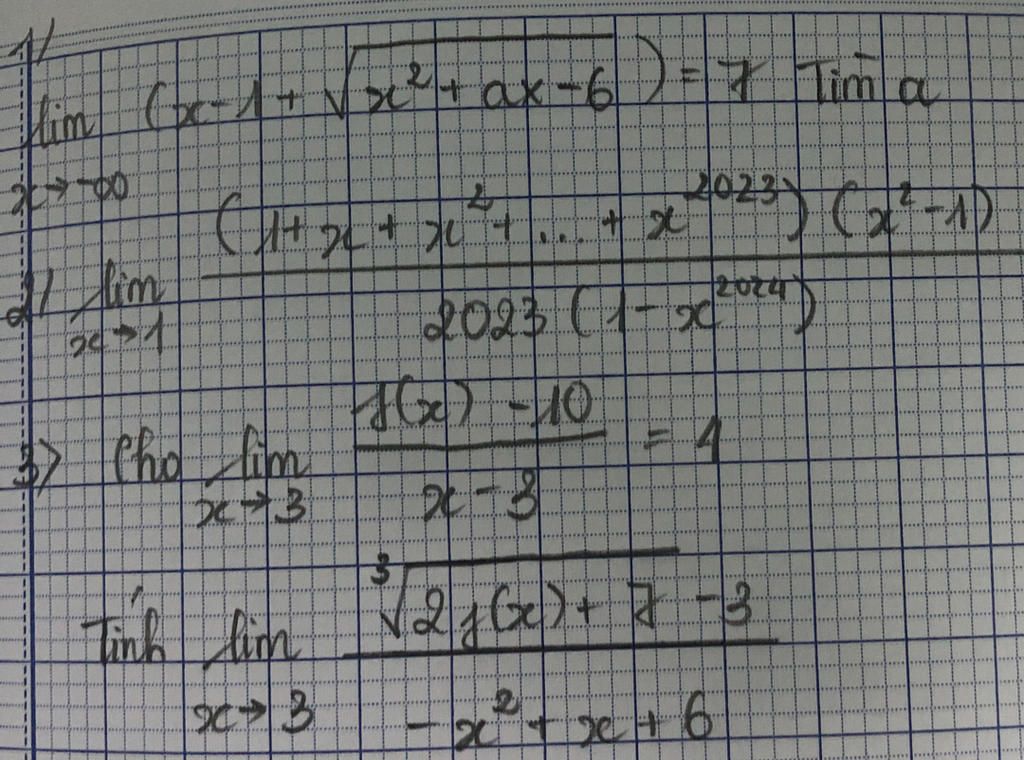 1/
lim x→-∞ (x-1+√(x²+ax-6)) = 7 Tìm a
2/ lim x→1 (1+x+x²+...+x²⁰²³)(x²-1) / 2023(1-x²⁰²⁴)
3> Cho lim x→3 (f(x)-10)/(x-3) = 1
Tính lim x→3 (∛(2f(x)+7)-3)/(-x²+x+6)